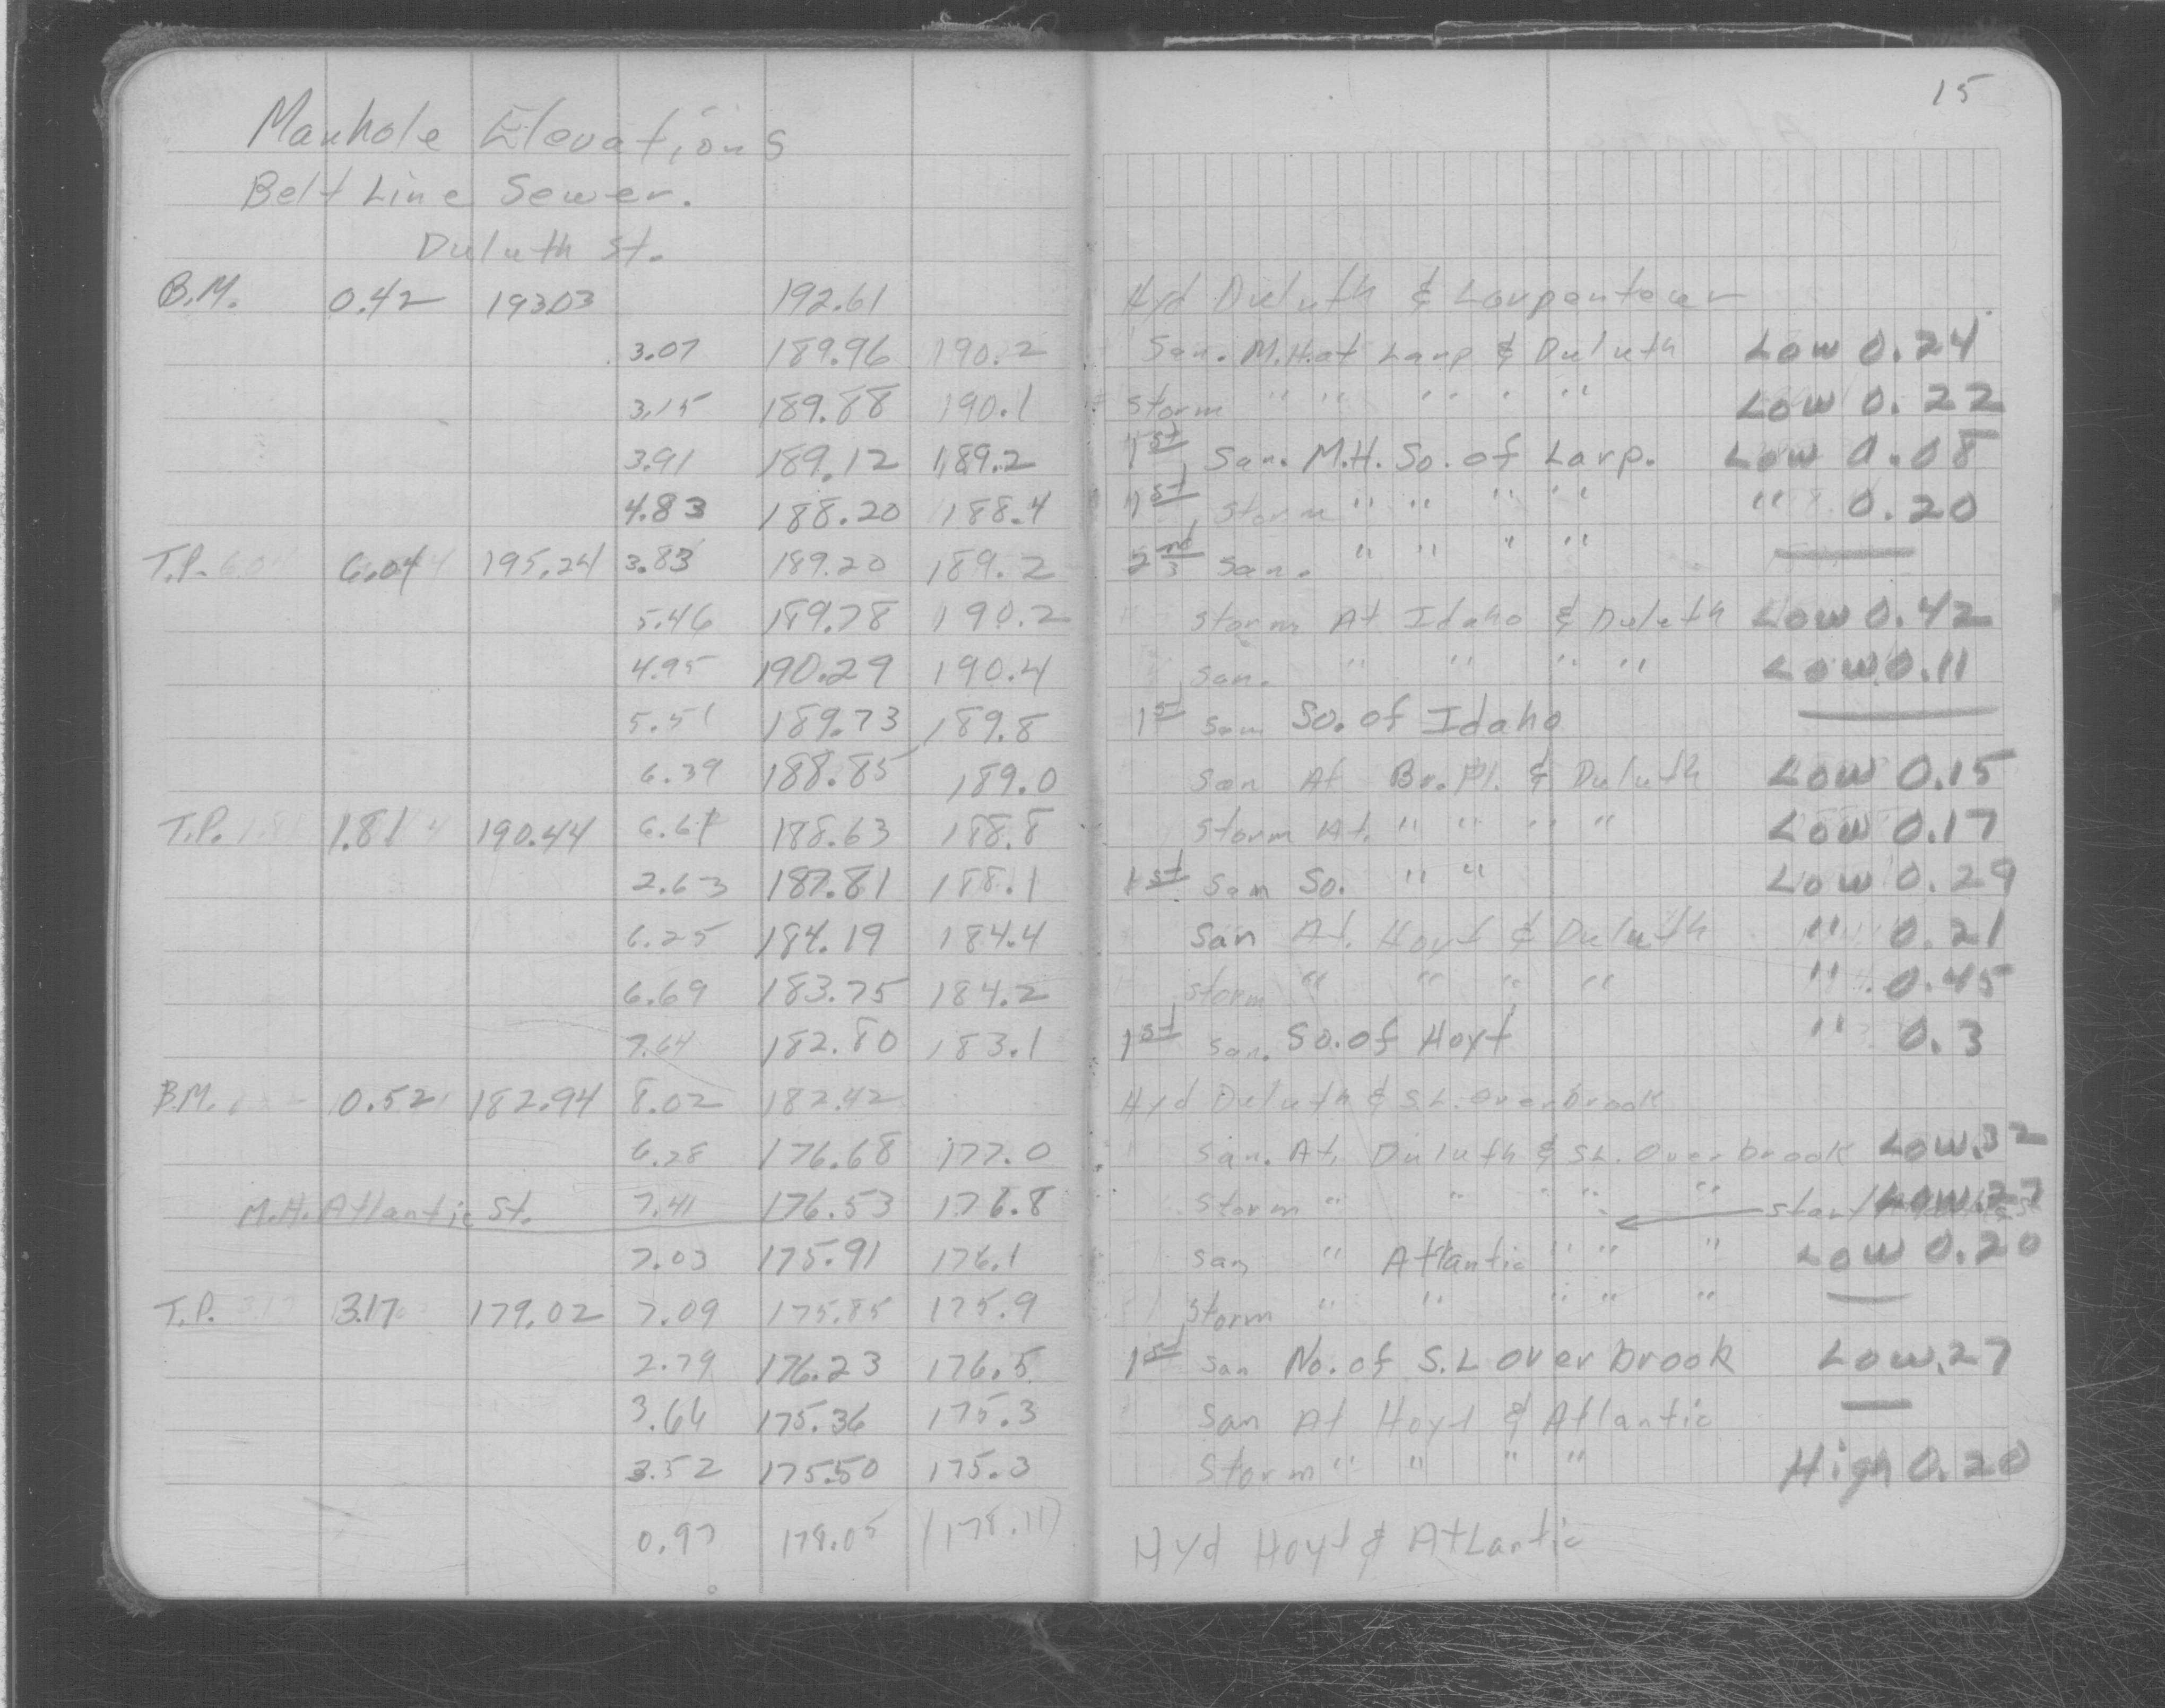 15
Manhole Elevations
Belt Line Sewer.
Duluth St.
B.M. 0.42 193.03 192.61 Hyd Duluth & Larpenteur
3.07 189.96 190.2 San. M.H. at Larp & Duluth Low 0.24
3.15 189.88 190.1 Storm " " " " " Low 0.22
3.91 189.12 189.2 1st San. M.H. So. of Larp. Low 0.08
4.83 188.20 188.4 1st Storm " " " " " 0.20
T.P. 6.04 195.24 3.83 189.20 189.2 2nd San. " " " "
5.46 189.78 190.2 Storm At Idaho & Duluth Low 0.42
4.95 190.29 190.4 San. " " " " Low 0.11
5.51 189.73 189.8 1st San So. of Idaho
6.39 188.85 189.0 San At Br. Pl. & Duluth Low 0.15
T.P. 1.81 190.44 6.61 188.63 188.8 Storm At. " " " " Low 0.17
2.63 187.81 188.1 1st San So. " " Low 0.29
6.25 184.19 184.4 San At. Hoyt & Duluth " 0.21
6.69 183.75 184.2 Storm " " " " " 0.45
7.64 182.80 183.1 1st San. So. of Hoyt " 0.3
B.M. 0.52 182.94 8.02 182.42 Hyd Duluth & S.L. Overbrook
6.28 176.68 177.0 San. At. Duluth & S.L. Overbrook Low .32
M.H. Atlantic St. 7.41 176.53 176.8 Storm " " " " " Start Low .27
7.03 175.91 176.1 San " Atlantic " " " Low 0.20
T.P. 3.17 179.02 7.09 175.85 175.9 Storm " " " " "
2.79 176.23 176.5 1st San No. of S.L Overbrook Low .27
3.66 175.36 175.3 San At Hoyt & Atlantic
3.52 175.50 175.3 Storm " " " " High 0.20
0.97 178.05 (178.11) Hyd Hoyt & Atlantic